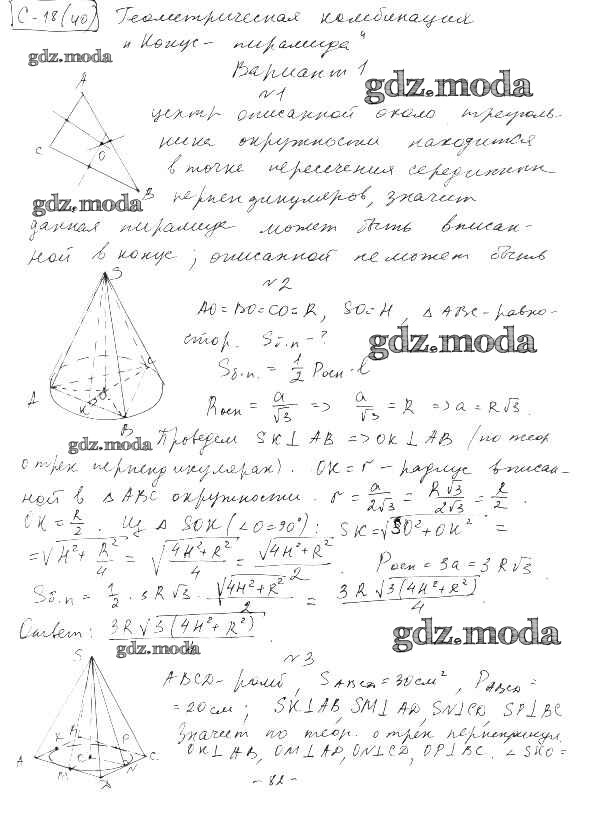 С-18(40) Геометрическая комбинация
"Конус - пирамида"
gdz.moda
Вариант 1
gdz.moda
№1
центр описанной около треуголь-
ника окружности находится
в точке пересечения серединн.
gdz.moda
перпендикуляров, значит
данная пирамида может быть вписан-
ной в конус; описанной не может быть
№2
AO=BO=CO=R, SO=H, ΔABC-равно-
стор. Sб.п-?
gdz.moda
Sб.п. = 1/2 Pосн·l
Rосн = a/√3 => a/√3 = R => a=R√3.
gdz.moda
Проведем SK⊥AB => OK⊥AB (по теор
о трёх перпендикулярах). OK=r-радиус вписан-
ной в ΔABC окружности. r = a/2√3 = R√3/2√3 = R/2.
OK=R/2. Из ΔSOK (∠O=90°): SK=√SO²+OK² =
=√H²+R²/4 = √(4H²+R²)/4 = √4H²+R²/2. Pосн=3a=3R√3.
Sб.п = 1/2 · 3R√3 · √4H²+R²/2 = 3R√3(4H²+R²)/4
Ответ: 3R√3(4H²+R²)/4
gdz.moda
gdz.moda
№3
ABCD-ромб, SABCD=30см², PABCD=
=20см; SK⊥AB, SM⊥AD, SN⊥CD, SP⊥BC
Значит по теор. о трёх перпендикул.
OK⊥AB, OM⊥AD, ON⊥CD, OP⊥BC. ∠SKO=
gdz.moda
- 82 -